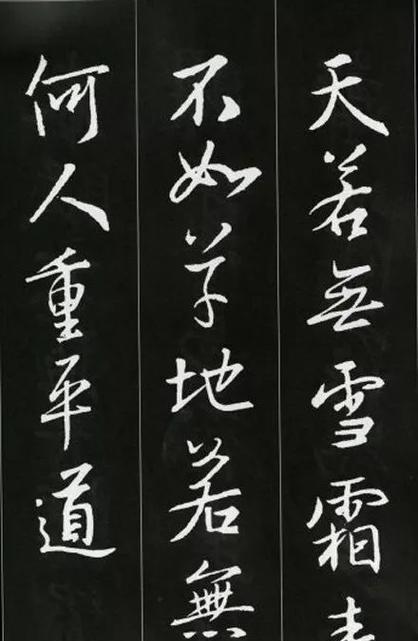 天若無雪霜
不如草地若無
何人重平道